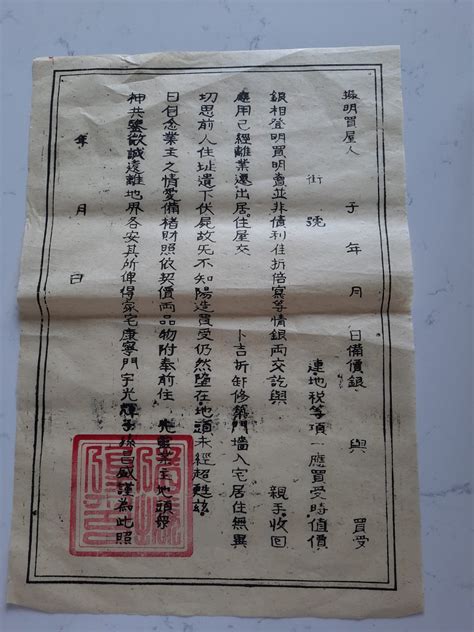 據明買屋人 子年 月 日備價銀 與 買受
街 號 連地稅等項一應買受時值價
銀相登明買明賣並非債利准折倍寫等情銀両交訖與 親手收回
應用己經離業遷出居住屋交 卜吉折卸修築門墻入宅居住無異
切思前人住址遺下伏屍故旡不知陽造買受仍然墮在地頭未經超甦茲
日自念業主之情愛備楮財照依契價両品物附奉前住 業主地頭
神共鑒歆誠遠離地界各安其所俾得家宅康寧門宇光輝子孫昌盛謹為此照
年 月 日